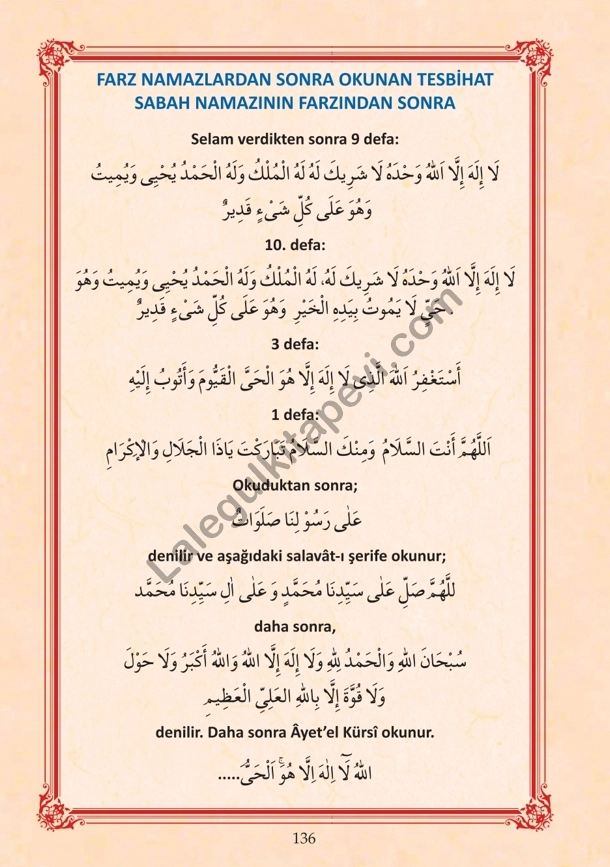 FARZ NAMAZLARDAN SONRA OKUNAN TESBİHAT
SABAH NAMAZININ FARZINDAN SONRA
Selam verdikten sonra 9 defa:
لَا إِلَهَ إِلَّا اَللهُ وَحْدَهُ لَا شَرِيكَ لَهُ لَهُ الْمُلْكُ وَلَهُ الْحَمْدُ يُحْيِى وَيُمِيتُ
وَهُوَ عَلَى كُلِّ شَىْءٍ قَدِيرٌ
10. defa:
لَا إِلَهَ إِلَّا اَللهُ وَحْدَهُ لَا شَرِيكَ لَهُ، لَهُ الْمُلْكُ وَلَهُ الْحَمْدُ يُحْيِى وَيُمِيتُ وَهُوَ
حَيّ لَا يَمُوتُ بِيَدِهِ الْخَيْرِ وَهُوَ عَلَى كُلِّ شَىْءٍ قَدِيرٌ.
3 defa:
أَسْتَغْفِرُ اللهَ الَّذِى لَا إِلَهَ إِلَّا هُوَ الْحَىَّ الْقَيُّومَ وَأَتُوبُ إِلَيْهِ
1 defa:
اَللَّهُمَّ أَنْتَ السَّلَامُ وَمِنْكَ السَّلَامُ تَبَارَكْتَ يَاذَا الْجَلَالِ وَالْإِكْرَامِ
Okuduktan sonra;
عَلٰى رَسُوْلِنَا صَلَوَاتٌ
denilir ve aşağıdaki salavât-ı şerife okunur;
للَّهُمَّ صَلِّ عَلٰى سَيِّدِنَا مُحَمَّدٍ وَ عَلٰى اٰلِ سَيِّدِنَا مُحَمَّد
daha sonra,
سُبْحَانَ اللهِ وَالْحَمْدُ لِلهِ وَلَا إِلَهَ إِلَّا اللهُ وَاللهُ أَكْبَرُ وَلَا حَوْلَ
وَلَا قُوَّةَ إِلَّا بِاللهِ العَلِيِّ الْعَظِيمِ
denilir. Daha sonra Âyet’el Kürsî okunur.
اَللهُ لَٓا اِلٰهَ اِلَّا هُوَۚ اَلْحَىُّ.....
136
Lalegulkitapevi.com